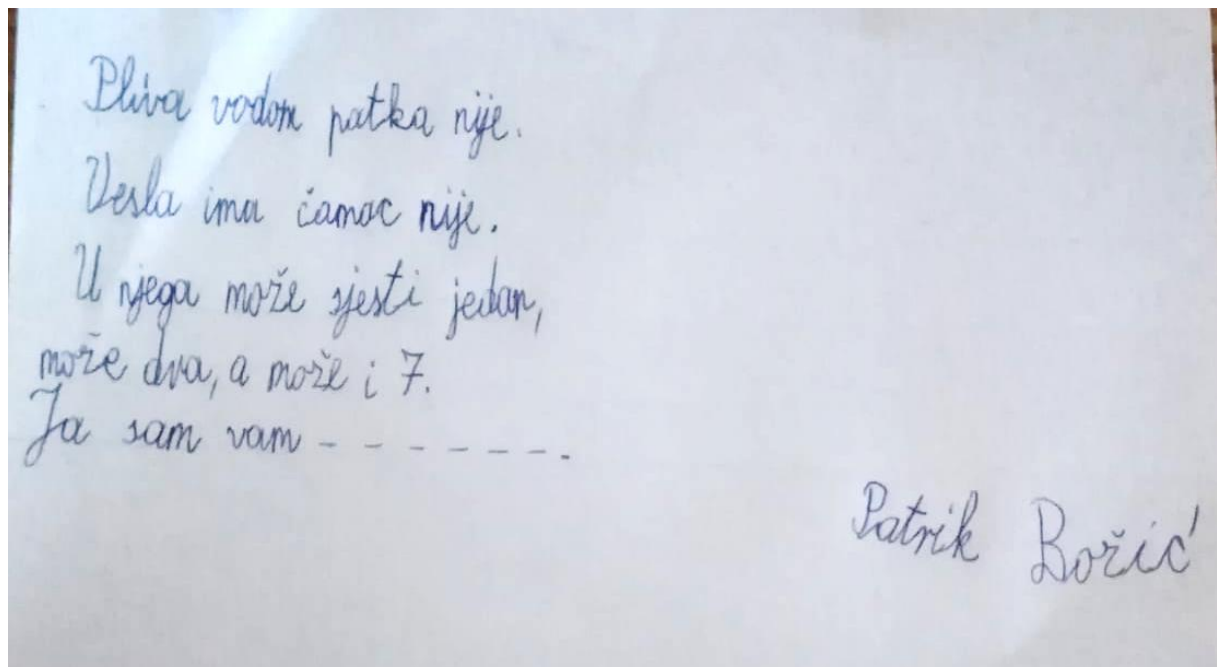 Pliva vodom patka nije.
Vesla ima čamac nije.
U njega može sjesti jedan,
može dva, a može i 7.
Ja sam vam - - - - - - -.
Patrik Božić